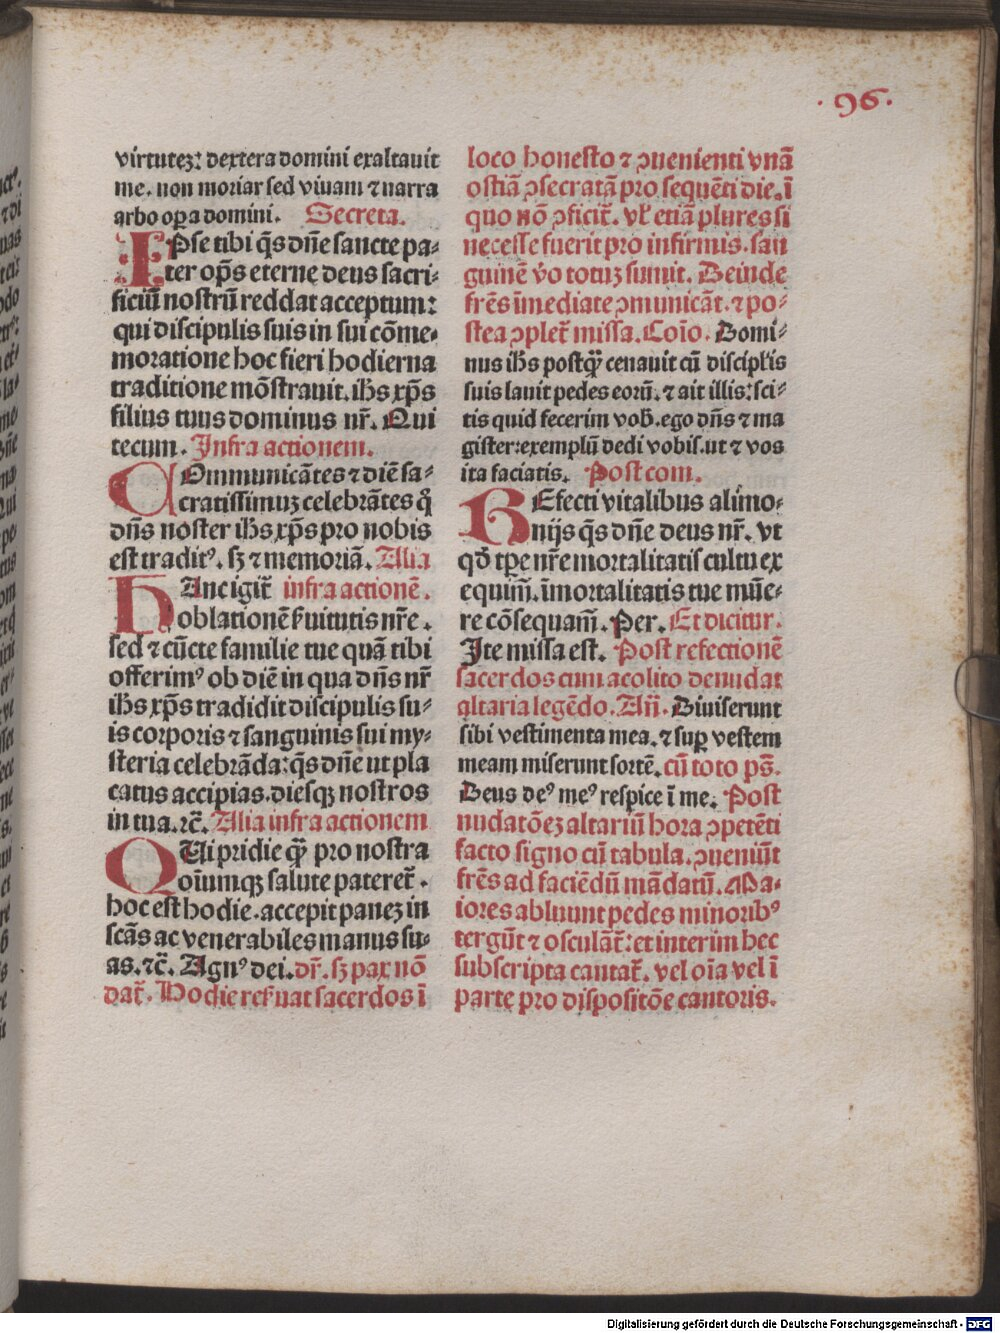 .96.
virtutez: dextera domini exaltauit
me. non moriar sed viuam ⁊ narra
arbo oꝑa domini. Secreta.
IPse tibi q̃s dñe sancte pa-
ter op̃s eterne deus sacri-
ficiũ nostrũ reddat acceptum:
qui discipulis suis in sui cõme-
moratione hoc fieri hodierna
traditione mõstrauit. ihs xp̃s
filius tuus dominus nr̃. Qui
tecum. Infra actionem.
COmmunicãtes ⁊ diẽ sa-
cratissimuz celebrãtes q̃
dñs noster ihs xp̃s pro nobis
est traditꝰ. sꝫ ⁊ memoriã. Alia
HAnc igit̃ infra actionẽ.
oblationẽ ẜuitutis nr̃e.
sed ⁊ cũcte familie tue quã tibi
offerimꝰ ob diẽ in qua dñs nr̃
ihs xp̃s tradidit discipulis su-
is corporis ⁊ sanguinis sui my-
steria celebrãda: q̃s dñe ut pla
catus accipias. diesqꝫ nostros
in tua. ⁊c̃. Alia infra actionem
QUi pridie qꝫ̃ pro nostra
oĩumqꝫ salute pateret̃.
hoc est hodie. accepit panez in
scãs ac venerabiles manus su-
as. ⁊c̃. Agnꝰ dei. dr̃. sꝫ pax nõ
dat̃. Hodie reẜuat sacerdos ĩ
loco honesto ⁊ ꝯuenienti vnã
ostiã ꝯsecratã pro sequẽti die. ĩ
quo nõ ꝯficit̃. vl̃ etiã plures si
necesse fuerit pro infirmis. san
guinẽ v̊o totuz sumit. Deinde
frẽs ĩmediate ꝯmunicãt. ⁊ po-
stea ꝯplet̃ missa. Coĩo. Domi-
nus ihs postqꝫ̃ cenauit cũ discipl̃is
suis lauit pedes eorũ. ⁊ ait illis: sci-
tis quid fecerim vob̃. ego dñs ⁊ ma
gister: exemplũ dedi vobis. ut ⁊ vos
ita faciatis. Post com.
REfecti vitalibus alimo-
nijs q̃s dñe deus nr̃. vt
qd̃ tꝑe nr̃e mortalitatis cultu ex
equim̃. ĩmortalitatis tue mũe-
re cõsequam̃. Per. Et dicitur.
Ite missa est. Post refectionẽ
sacerdos cum acolito denudat
altaria legẽdo. Añ. Diuiserunt
sibi vestimenta mea. ⁊ suꝑ vestem
meam miserunt sortẽ. cũ toto ps̃.
Deus deꝰ meꝰ respice ĩ me. Post
nudatõez altariũ hora ꝯpetẽti
facto signo cũ tabula. ꝯueniũt
frẽs ad faciẽdũ mãdatũ. Ma-
iores abluunt pedes minoribꝰ
tergũt ⁊ osculãt̃: et interim hec
subscripta cantat̃. vel oĩa vel ĩ
parte pro dispositõe cantoris.
Digitalisierung gefördert durch die Deutsche Forschungsgemeinschaft - DFG